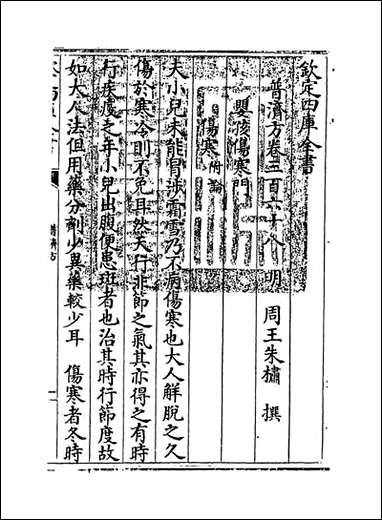 欽定四庫全書
普濟方卷三百六十八 明 周王朱橚 撰
嬰孩傷寒門
傷寒附論
夫小兒未能冒涉霜雪乃不病傷寒也大人解脫之久
傷於寒冷則不免耳然天行非節之氣其亦得之有時
行疾疫之年小兒出腹便患斑者也治其時行節度故
如大人法但用藥分劑少異藥較少耳 傷寒者冬時
普濟方